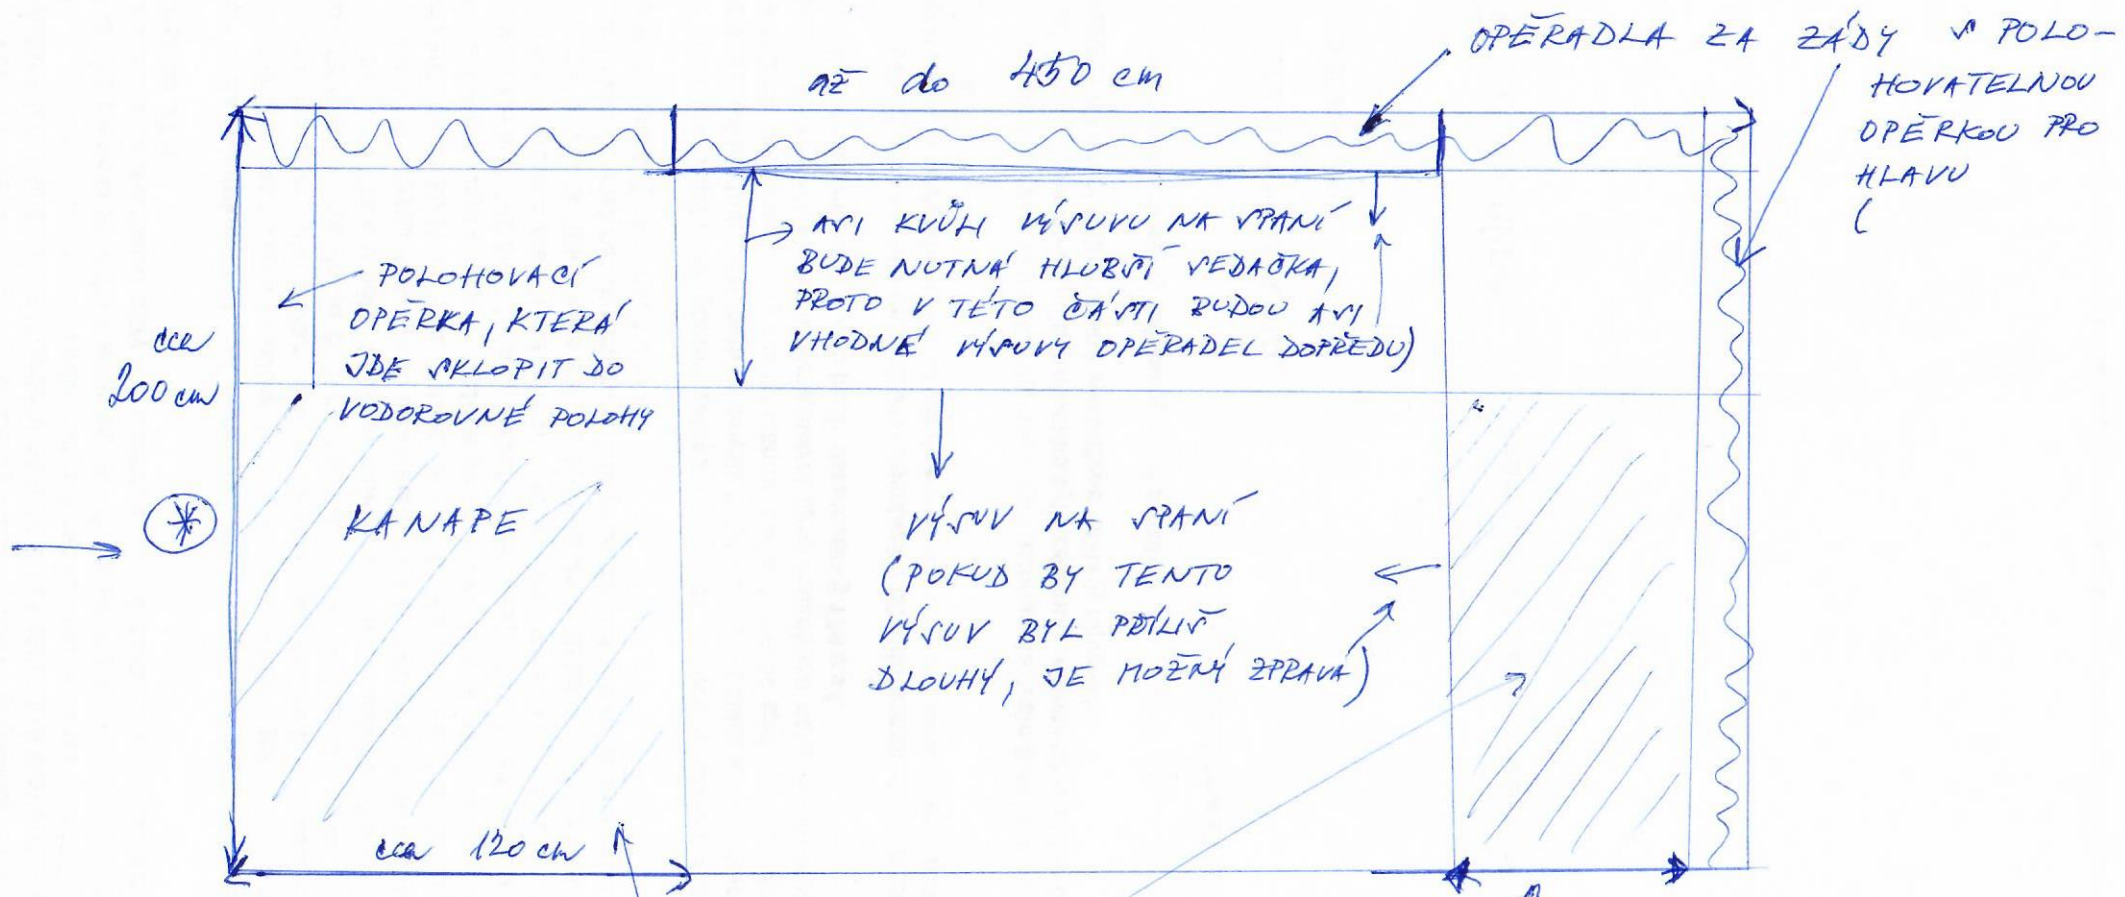 až do 450 cm
OPĚRADLA ZA ZÁDY S POLO-
HOVATELNOU
OPĚRKOU PRO
HLAVU
(
ASI KVŮLI VÝSUVU NA SPANÍ
BUDE NUTNÁ HLUBŠÍ SEDAČKA,
PROTO V TÉTO ČÁSTI BUDOU ASI
VHODNÉ VÝSUVY OPĚRADEL DOPŘEDU)
POLOHOVACÍ
OPĚRKA, KTERÁ
JDE SKLOPIT DO
VODOROVNÉ POLOHY
cca
200 cm
KANAPE
VÝSUV NA SPANÍ
(POKUD BY TENTO
VÝSUV BYL PŘÍLIŠ
DLOUHÝ, JE MOŽNÝ ZPRAVA)
cca 120 cm